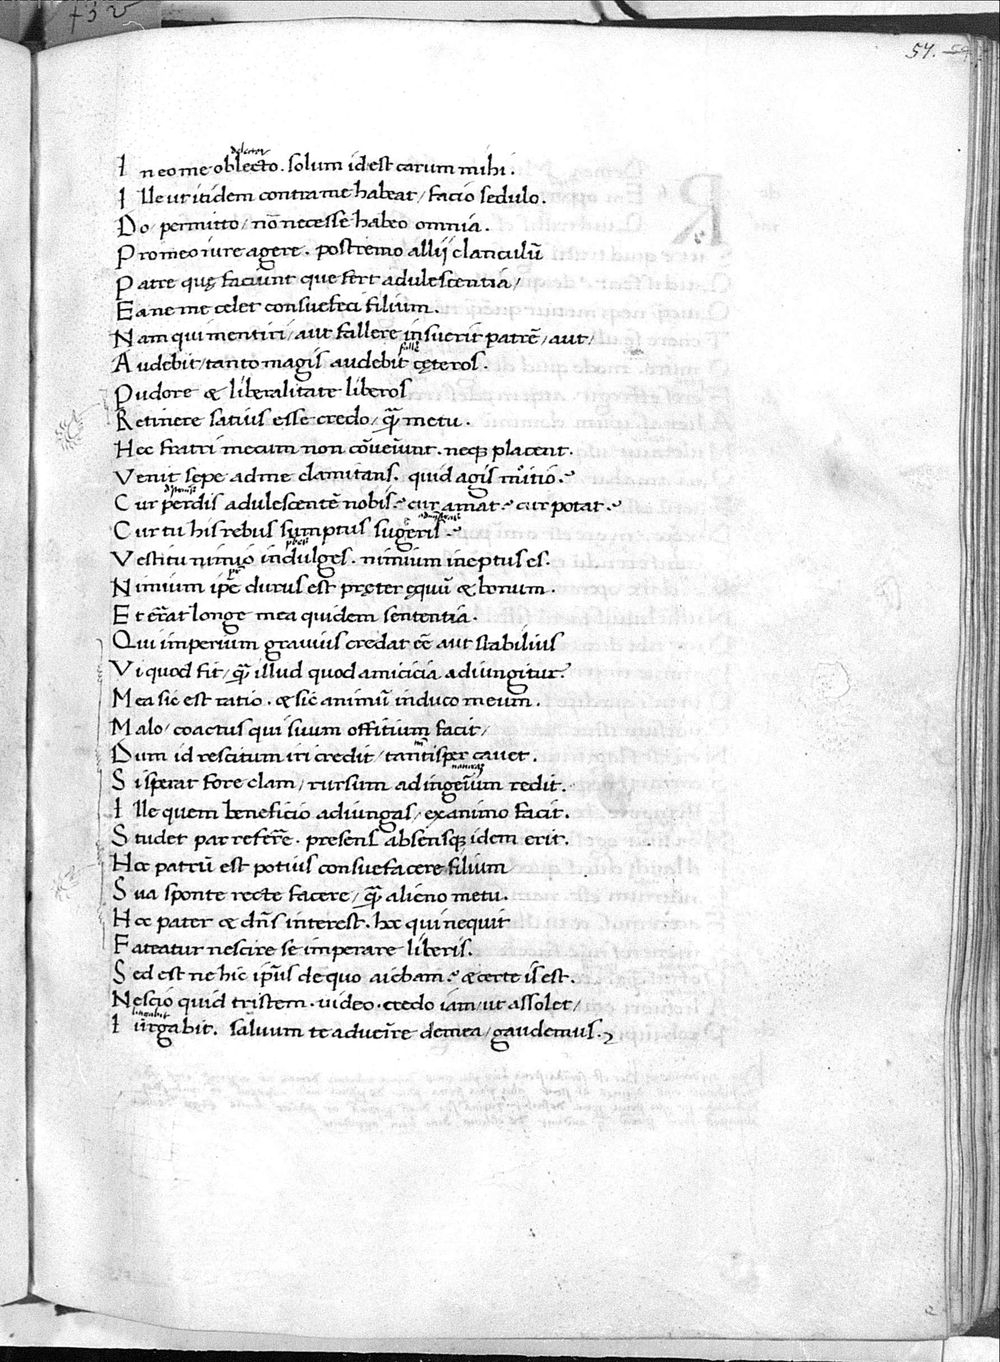 57.
delector
In eo me oblecto. solum id est carum mihi.
Ille ut itidem contra me habeat/ facio sedulo.
Do/ permitto/ nō necesse habeo omnia.
Pro meo iure agere. postremo allij clanculū
Patre quę faciunt que fert adulescentia/
Ea ne me celet consuefeci filium.
Nam qui mentiri/ aut fallere insuerit patrē/ aut/
Audebit/ tanto magis audebit cęteros.
Pudore & liberalitate liberos
Retinere satius esse credo/ quā metu.
Hec fratri mecum non cōueīunt. neqꝫ placent.
Venit sepe ad me clamitans. quid agis mitio.
Cur perdis adulescentē nobis. cur amat. cur potat.
Cur tu his rebus sumptus sugeris.
Vestitu nimio indulges. nimium ineptus es.
Nimium ipē durus est pręter ęquū & bonum.
Et errat longe mea quidem sententia.
Qui imperium grauius credat eē aut stabilius
Vi quod fit/ quā illud quod amicicia adiungitur.
Mea sic est ratio. & sic animū induco meum.
Malo/ coactus qui suum offitium facit/
Dum id rescitum iri credit/ tantisper cauet.
Si sperat fore clam/ rursum ad ingeīum redit.
Ille quem beneficio adiungas/ ex animo facit.
Studet par referre. presens absensqꝫ idem erit.
Hoc patrū est potius consuefacere filium
Sua sponte recte facere/ quā alieno metu.
Hoc pater & dn̄s interest. hoc qui nequit
Fateatur nescire se imperare liberis.
Sed est ne hic ipsus de quo aiebam. & certe is est.
Nescio quid tristem uideo. credo iam ut assolet/
Iurgabit. saluum te aduenire demea/ gaudemus.